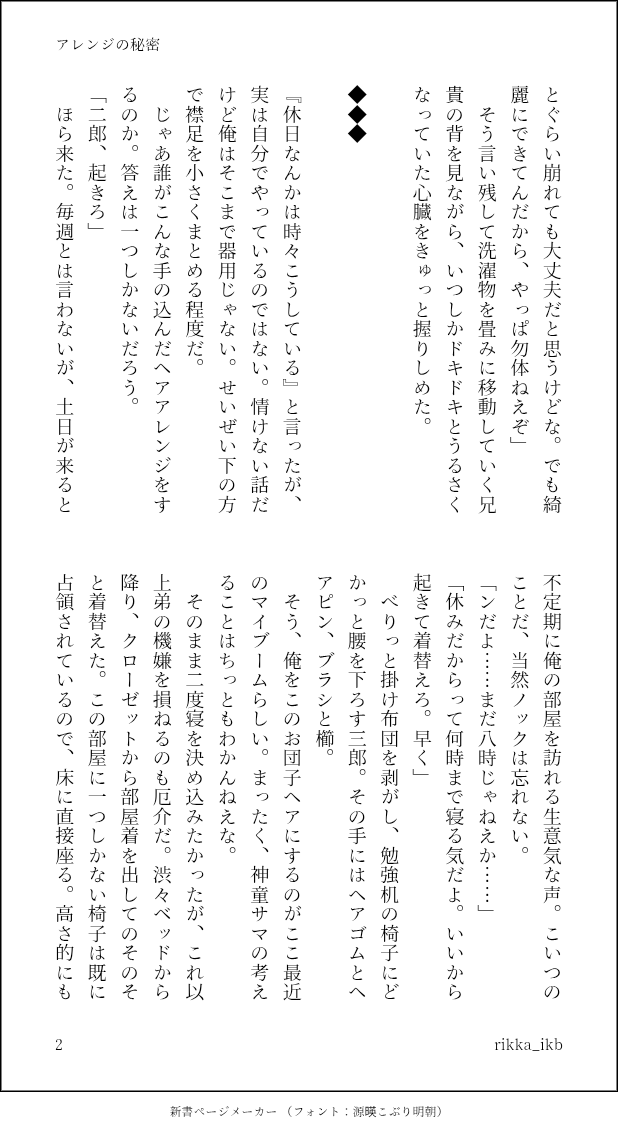 アレンジの秘密
とぐらい崩れても大丈夫だと思うけどな。でも綺
麗にできてんだから、やっぱ勿体ねえぞ」
　そう言い残して洗濯物を畳みに移動していく兄
貴の背を見ながら、いつしかドキドキとうるさく
なっていた心臓をきゅっと握りしめた。
◆◆◆
『休日なんかは時々こうしている』と言ったが、
実は自分でやっているのではない。情けない話だ
けど俺はそこまで器用じゃない。せいぜい下の方
で襟足を小さくまとめる程度だ。
　じゃあ誰がこんな手の込んだヘアアレンジをす
るのか。答えは一つしかないだろう。
「二郎、起きろ」
　ほら来た。毎週とは言わないが、土日が来ると
不定期に俺の部屋を訪れる生意気な声。こいつの
ことだ、当然ノックは忘れない。
「ンだよ……まだ八時じゃねえか……」
「休みだからって何時まで寝る気だよ。いいから
起きて着替えろ。早く」
　べりっと掛け布団を剥がし、勉強机の椅子にど
かっと腰を下ろす三郎。その手にはヘアゴムとヘ
アピン、ブラシと櫛。
　そう、俺をこのお団子ヘアにするのがここ最近
のマイブームらしい。まったく、神童サマの考え
ることはちっともわかんねえな。
　そのまま二度寝を決め込みたかったが、これ以
上弟の機嫌を損ねるのも厄介だ。渋々ベッドから
降り、クローゼットから部屋着を出してのそのそ
と着替えた。この部屋に一つしかない椅子は既に
占領されているので、床に直接座る。高さ的にも
2
rikka_ikb
新書ページメーカー（フォント：源暎こぶり明朝）